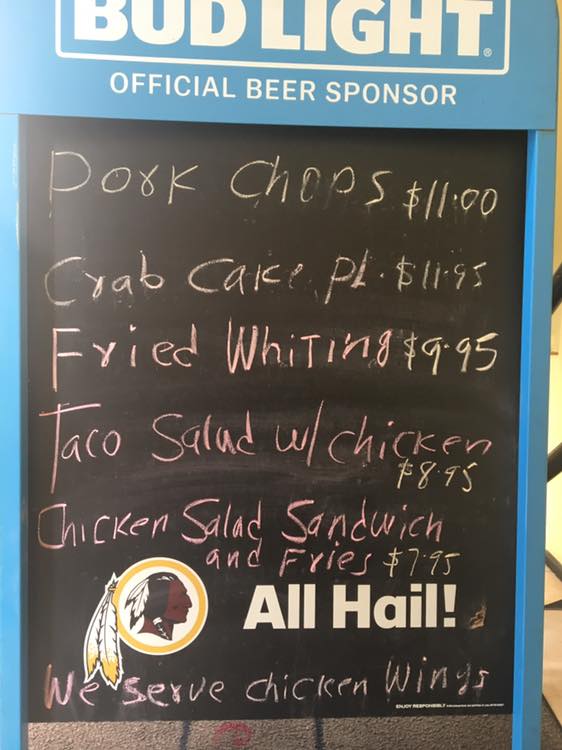 BUD LIGHT®
OFFICIAL BEER SPONSOR
Pork Chops $11.00
Crab Cake Pl. $11.95
Fried Whiting $9.95
Taco Salad w/ chicken
$8.95
Chicken Salad Sandwich
and Fries $7.95
All Hail!
We serve chicken Wings
ENJOY RESPONSIBLY